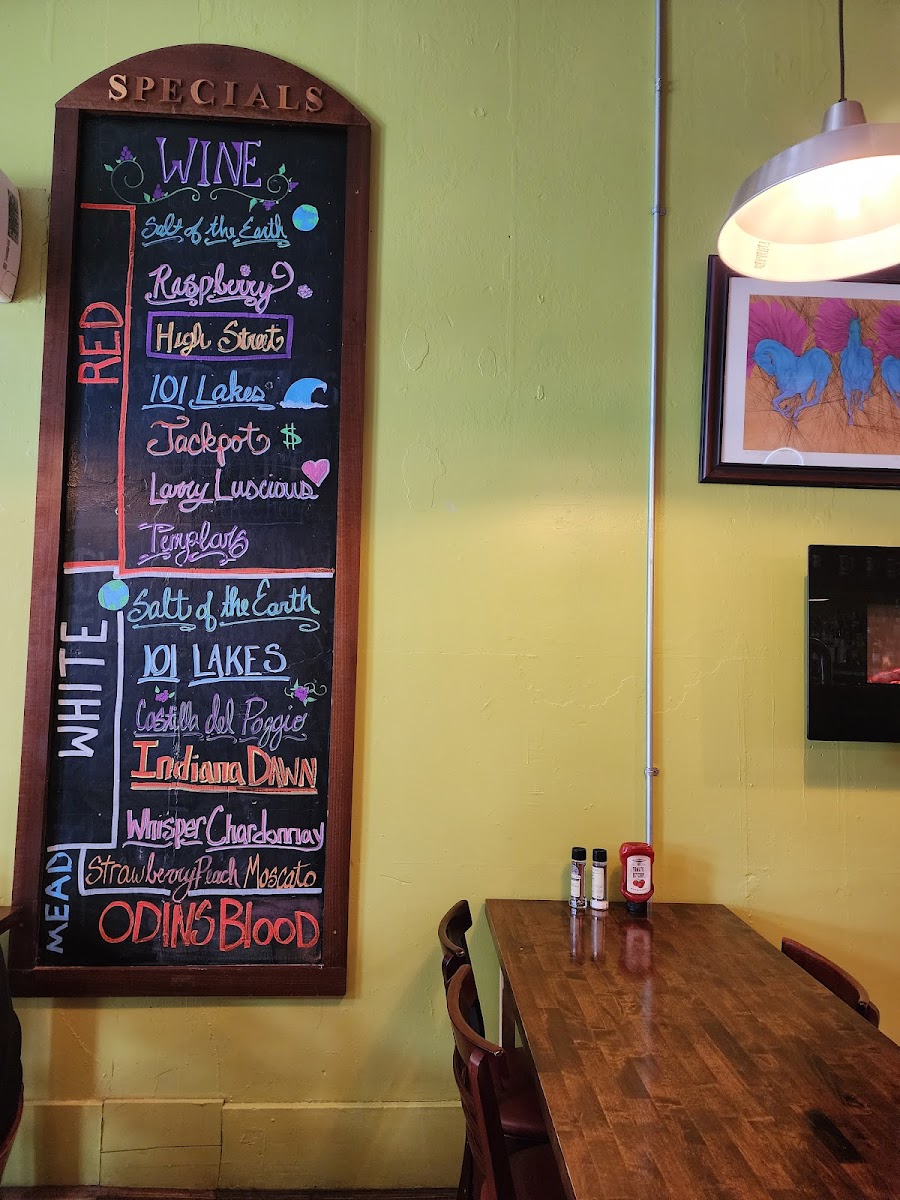 SPECIALS
WINE
RED
Salt of the Earth
Raspberry
High Street
101 Lakes
Jackpot $
Larry Luscious
Templars
WHITE
Salt of the Earth
101 LAKES
Castilla del Poggio
Indiana DAWN
Whisper Chardonnay
Strawberry Peach Moscato
MEAD
ODINS Blood
TOMATO
KETCHUP